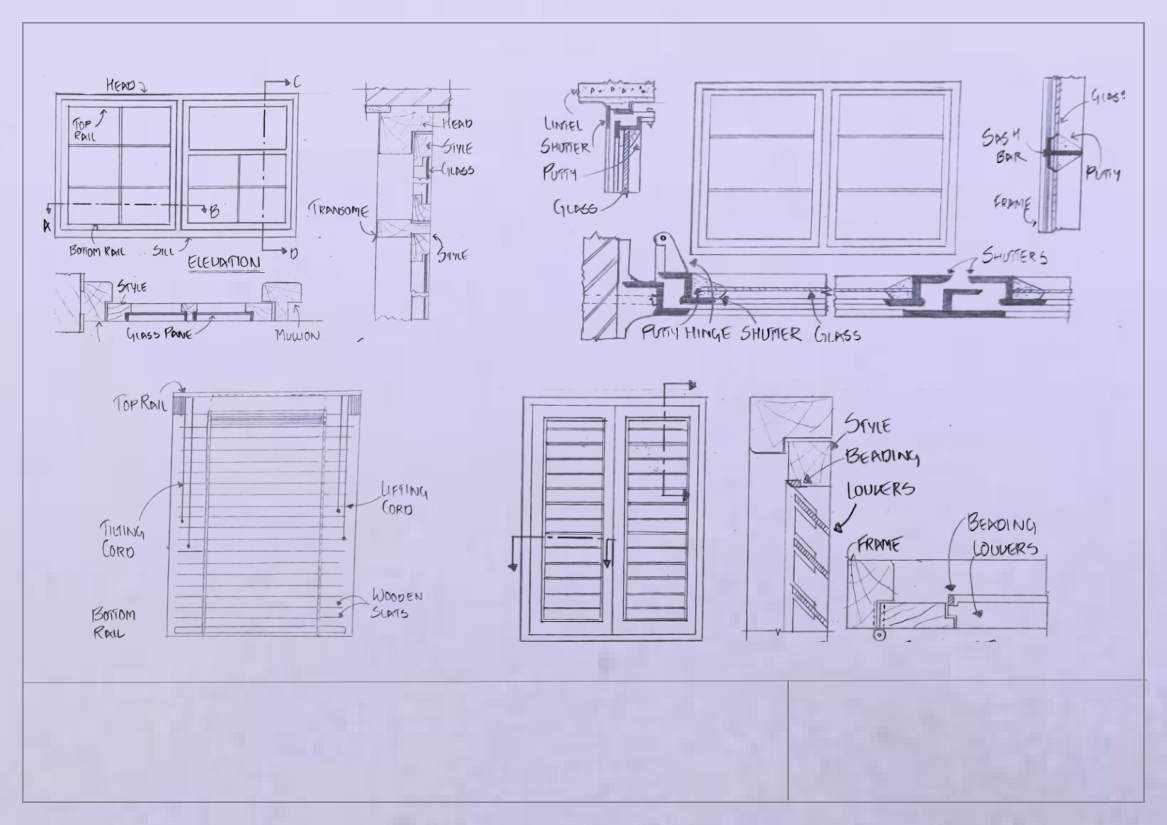 HEAD
C
TOP
RAIL
A
B
BOTTOM RAIL
SILL
D
ELEVATION
STYLE
GLASS PANE
MULLION
HEAD
STYLE
GLASS
TRANSOME
STYLE
LINTEL
SHUTTER
PUTTY
GLASS
GLASS
SASH
BAR
PUTTY
FRAME
SHUTTERS
PUTTY HINGE SHUTTER GLASS
TOP RAIL
LIFTING
CORD
TILTING
CORD
WOODEN
SLATS
BOTTOM
RAIL
STYLE
BEADING
LOUVERS
FRAME
BEADING
LOUVERS